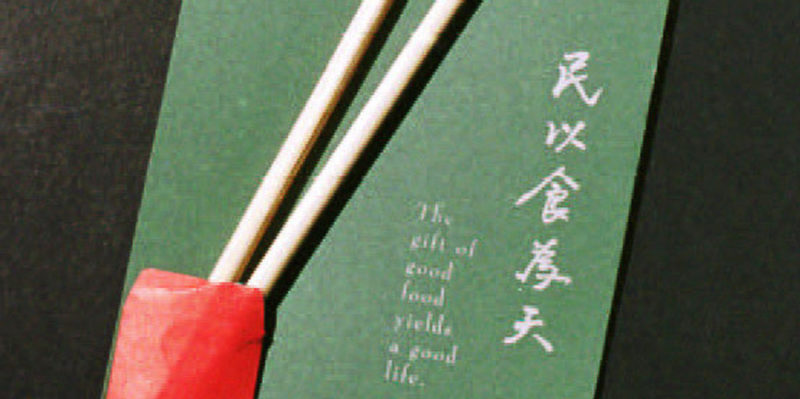 民以食為天
The
gift of
good
food
yields
a good
life.